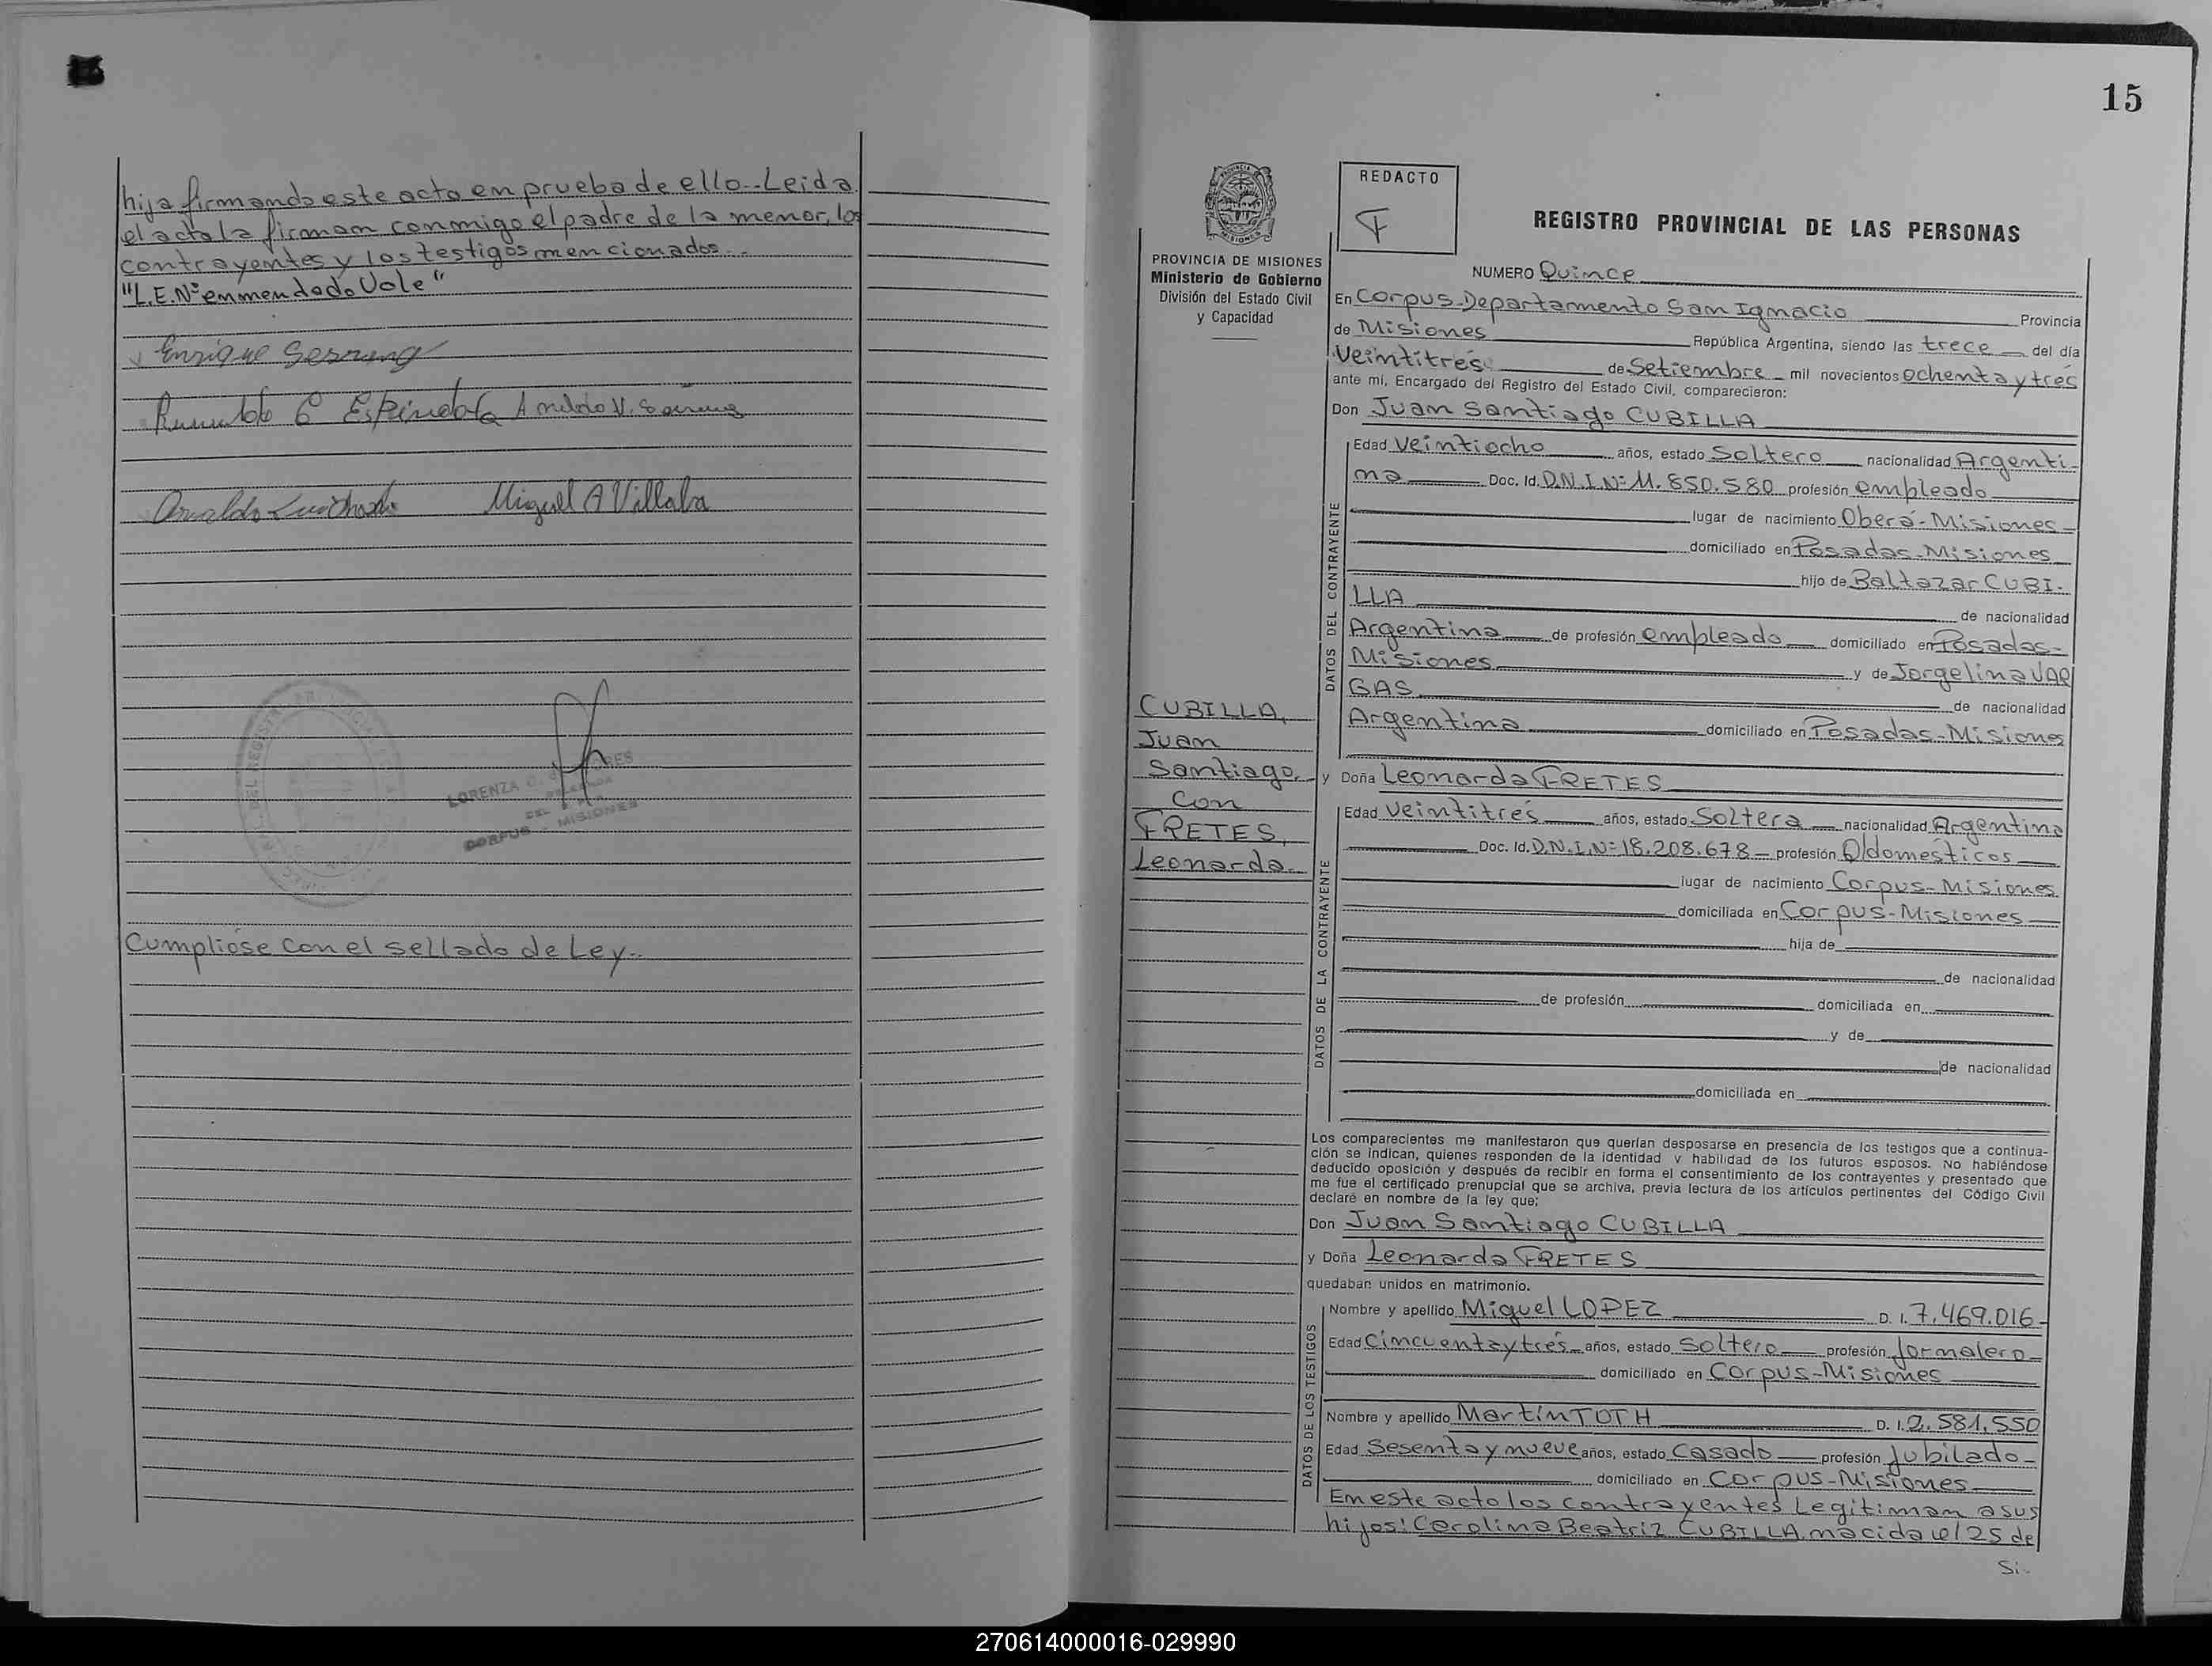 hija firmando este acto en prueba de ello.-Leida
el acta la firman conmigo el padre de la menor, los
contrayentes y los testigos mencionados.--
"L.E.Nº enmendado Vale"
Enrique
Espindola
Miguel A Villalba
LORENZA C.
DEL
CORPUS - MISIONES
Cumpliose con el sellado de Ley.-
15
REDACTO
F
REGISTRO PROVINCIAL DE LAS PERSONAS
PROVINCIA DE MISIONES
Ministerio de Gobierno
División del Estado Civil
y Capacidad
NUMERO Quince
En Corpus-Departamento San Ignacio Provincia
de Misiones República Argentina, siendo las trece del día
Veintitrés de Setiembre mil novecientos ochenta y tres
ante mi, Encargado del Registro del Estado Civil, comparecieron:
Don Juan Santiago CUBILLA
DATOS DEL CONTRAYENTE
Edad Veintiocho años, estado Soltero nacionalidad Argenti-
na Doc. Id. D.N.I.Nº 11.850.580 profesión empleado
lugar de nacimiento Oberá-Misiones
domiciliado en Posadas-Misiones
hijo de Baltazar CUBI-
LLA de nacionalidad
Argentina de profesión empleado domiciliado en Posadas-
Misiones y de Jorgelina VAR
GAS de nacionalidad
Argentina domiciliado en Posadas-Misiones
CUBILLA,
Juan
Santiago,
Con
FRETES,
Leonarda.
y Doña Leonarda FRETES
DATOS DE LA CONTRAYENTE
Edad Veintitrés años, estado Soltera nacionalidad Argentina
Doc. Id. D.N.I.Nº 18.208.678 profesión Q/domésticos
lugar de nacimiento Corpus-Misiones
domiciliada en Corpus-Misiones
hija de
de nacionalidad
de profesión domiciliada en
y de
de nacionalidad
domiciliada en
Los comparecientes me manifestaron que querían desposarse en presencia de los testigos que a continua-
ción se indican, quienes responden de la identidad y habilidad de los futuros esposos. No habiéndose
deducido oposición y después de recibir en forma el consentimiento de los contrayentes y presentado que
me fue el certificado prenupcial que se archiva, previa lectura de los artículos pertinentes del Código Civil
declaré en nombre de la ley que;
Don Juan Santiago CUBILLA
y Doña Leonarda FRETES
quedaban unidos en matrimonio.
DATOS DE LOS TESTIGOS
Nombre y apellido Miguel LOPEZ D. I. 7.469.016
Edad Cincuenta y tres años, estado Soltero profesión Jornalero
domiciliado en Corpus-Misiones
Nombre y apellido Martín TOTH D. I. 2.581.550
Edad Sesenta y nueve años, estado Casado profesión Jubilado
domiciliado en Corpus-Misiones
En este acto los contrayentes Legitiman a sus
hijos: Carolina Beatriz CUBILLA, nacida el 25 de
Si-
270614000016-029990